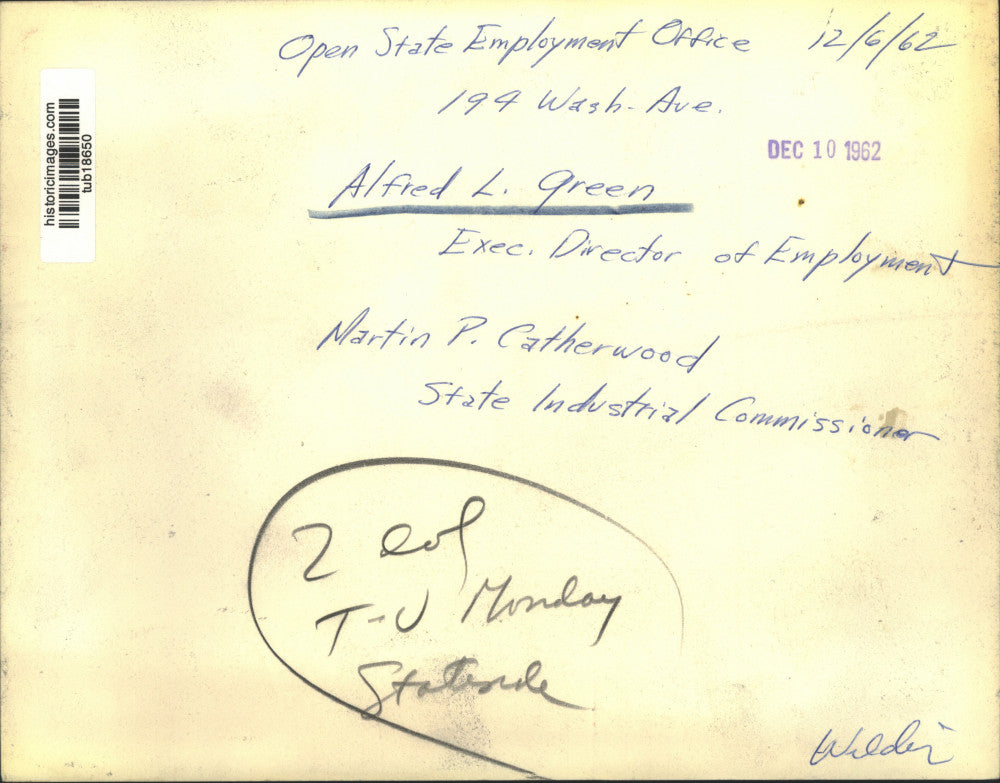 Open State Employment Office 12/6/62
194 Wash. Ave.
DEC 10 1962
Alfred L. Green
Exec. Director of Employment
Martin P. Catherwood
State Industrial Commissioner
2 col
T-U Monday
Stateside
historicimages.com
tub18650